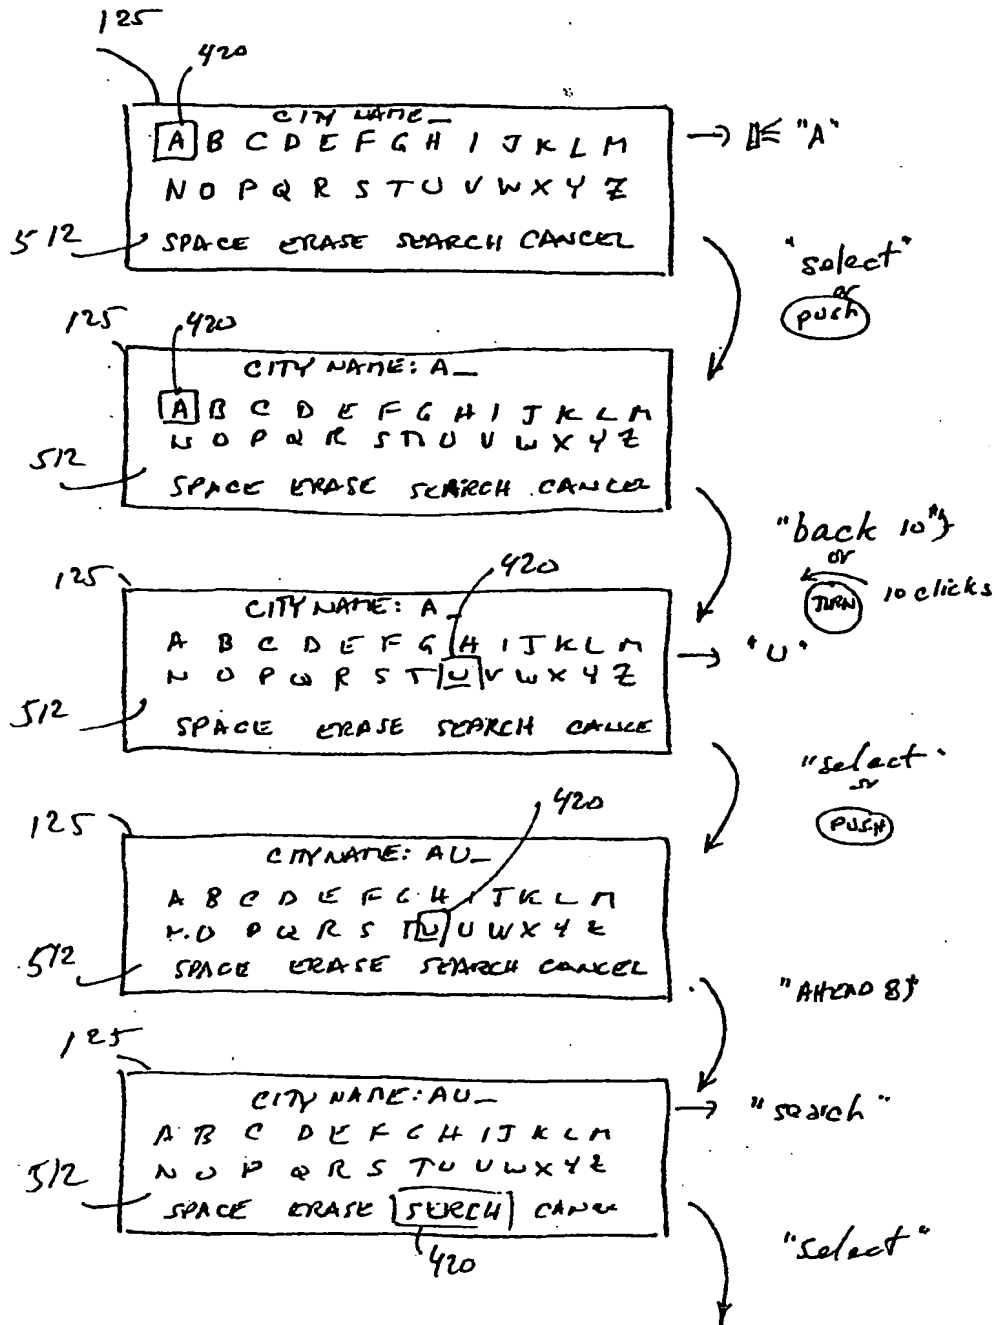 125
420
CITY NAME_
A B C D E F G H I J K L M → "A"
N O P Q R S T U V W X Y Z
512 SPACE ERASE SEARCH CANCEL
"select"
or
push
125 420
CITY NAME: A_
A B C D E F G H I J K L M
N O P Q R S T U V W X Y Z
512
SPACE ERASE SEARCH CANCEL
"back 10"
or
TURN 10 clicks
420
125
CITY NAME: A_
A B C D E F G H I J K L M
N O P Q R S T U V W X Y Z → "U"
512
SPACE ERASE SEARCH CANCE
"select"
or
PUSH
420
125
CITY NAME: AU_
A B C D E F G H I J K L M
N O P Q R S T U V W X Y Z
512 SPACE ERASE SEARCH CANCEL
"AHEAD 8"
125
CITY NAME: AU_ → "search"
A B C D E F G H I J K L M
N O P Q R S T U V W X Y Z
512
SPACE ERASE SERCH CANCE
420
"select"